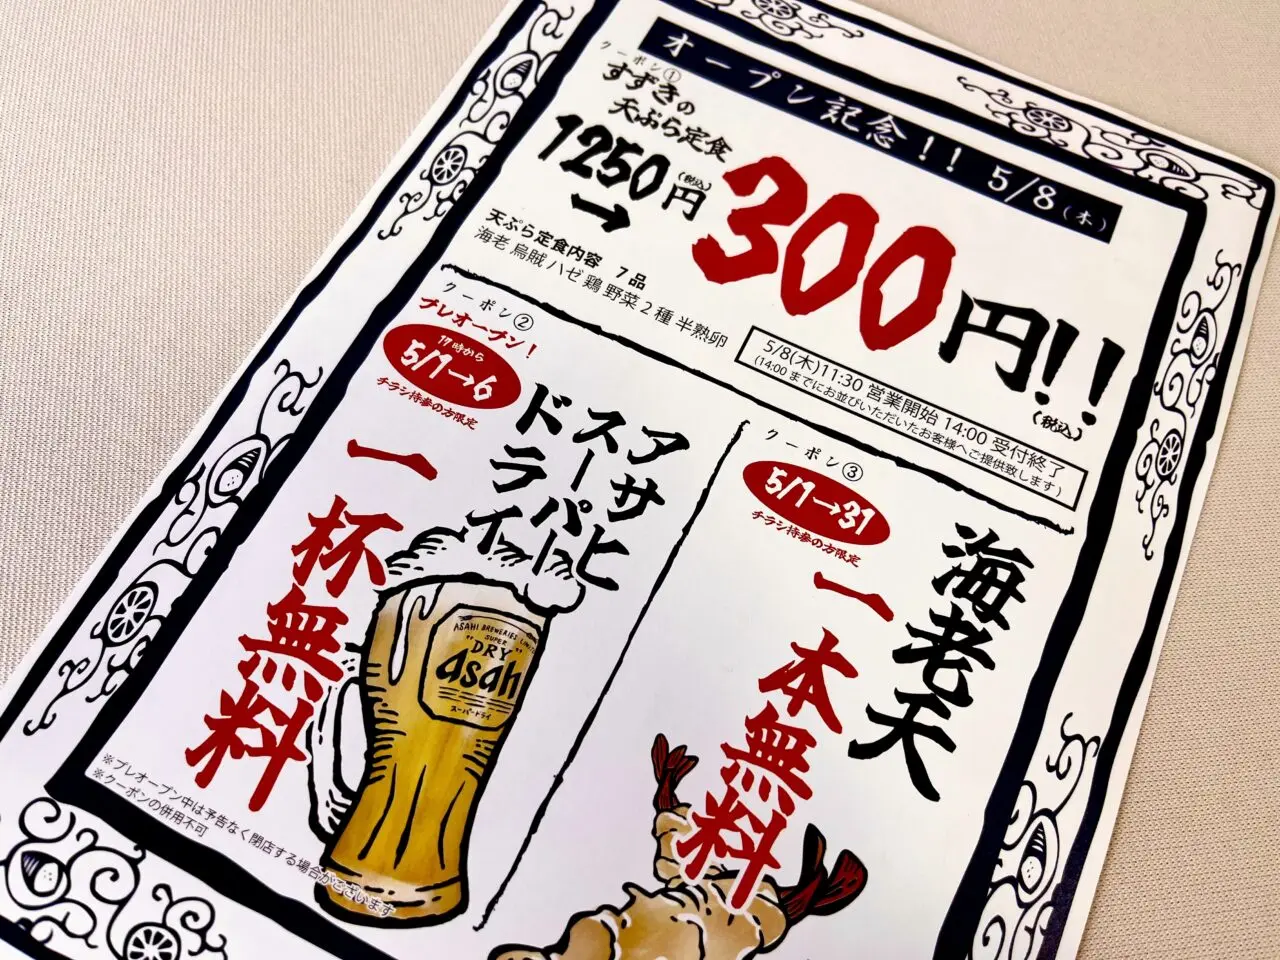 オープン記念!! 5/8(木)
クーポン①
すずきの
天ぷら定食
1250円(税込)
→
300円!!
(税込)
天ぷら定食内容 7品
海老 烏賊 ハゼ 鶏 野菜2種 半熟卵
5/8(木)11:30 営業開始 14:00 受付終了
(14:00 までにお並びいただいたお客様へご提供致します)
クーポン②
プレオープン!
17時から
5/1→6
チラシ持参の方限定
アサヒ
スーパー
ドライ
一杯無料
ASAHI BREWERIES LIMITED
SUPER
"DRY"
asahi
スーパードライ
※プレオープン中は予告なく閉店する場合がございます
※クーポンの併用不可
クーポン③
5/1→31
チラシ持参の方限定
海老天
一本無料